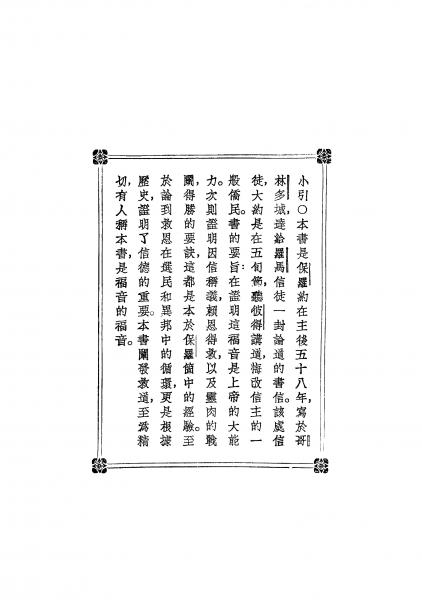 小引○本書是保羅約在主後五十八年，寫於哥
林多城，達給羅馬信徒一封論道的書信。該處信
徒大約是在五旬節，聽彼得講道，悔改信主的一
般僑民。書的要旨：在證明這福音是上帝的大能
力。次則證明因信稱義，賴恩得救，以及靈肉的戰
鬭，得勝的要訣，這都是本於保羅箇中的經驗。至
於論到救恩在選民和異邦中的循環，更是根據
歷史，證明了信德的重要。本書闡發救道，至為精
切，有人稱本書，是福音的福音。